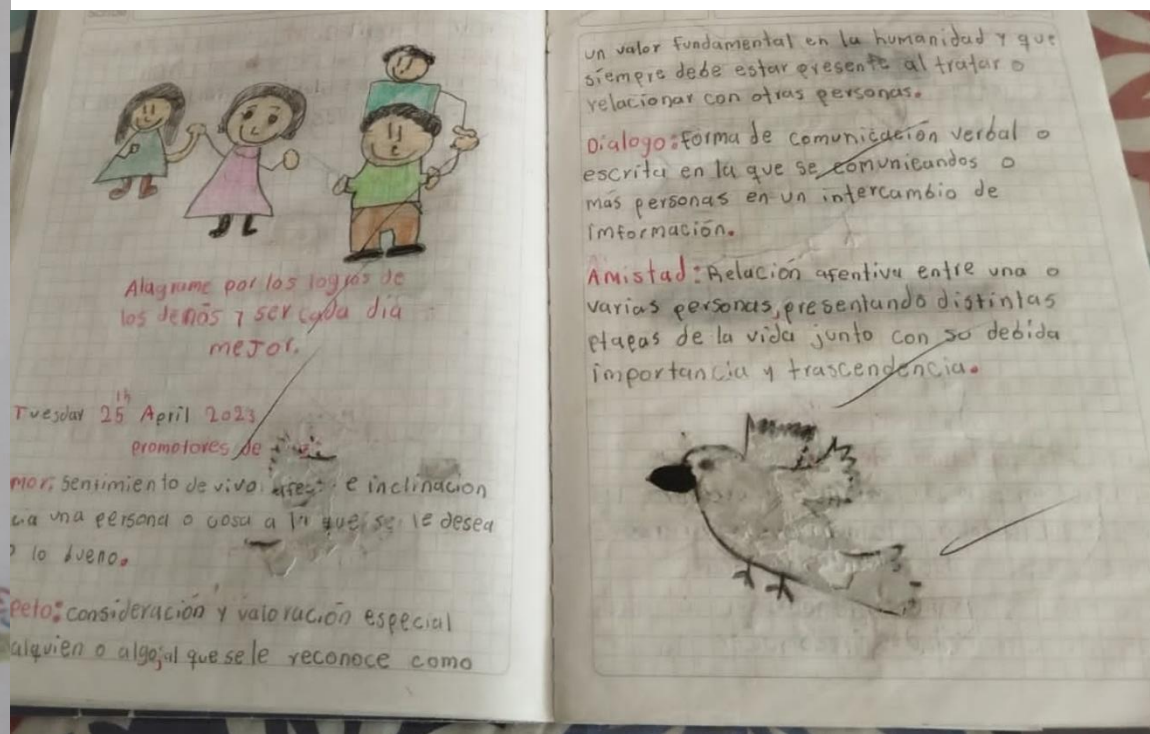 Alagrame por los logros de
los demás y ser cada día
mejor.
Tuesday 25th April 2023
promotores de
mor: Sentimiento de vivo afecto e inclinación
cia una persona o cosa a la que se le desea
o lo bueno.
peto: consideración y valoración especial
alguien o algo, al que se le reconoce como
un valor fundamental en la humanidad y que
siempre debe estar presente al tratar o
relacionar con otras personas.
Dialogo: forma de comunicación verbal o
escrita en la que se comunicandos o
más personas en un intercambio de
imformación.
Amistad: Relación afentiva entre una o
varias personas, presentando distintas
etapas de la vida junto con su debida
importancia y trascendencia.